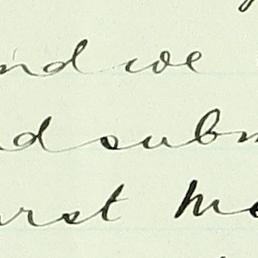 nd we
d subm
urst Mo